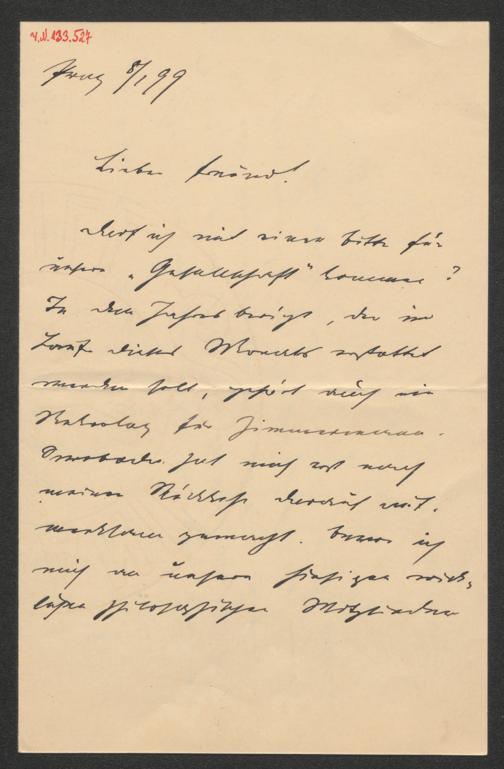 V.N. 133.527
Prag 8/1 99
Lieber Freund!
Darf ich mit einer Bitte für
unsere „Gesellschaft" kommen?
In den Jahresbericht, der im
Lauf dieses Monats erstattet
werden soll, gehört auch ein
Nekrolog für Zimmermann.
hat mich erst nach
meiner Rückkehr darauf auf-
merksam gemacht. Bevor ich
mich an unsere hiesigen wirk-
lichen philosophischen Mitglieder